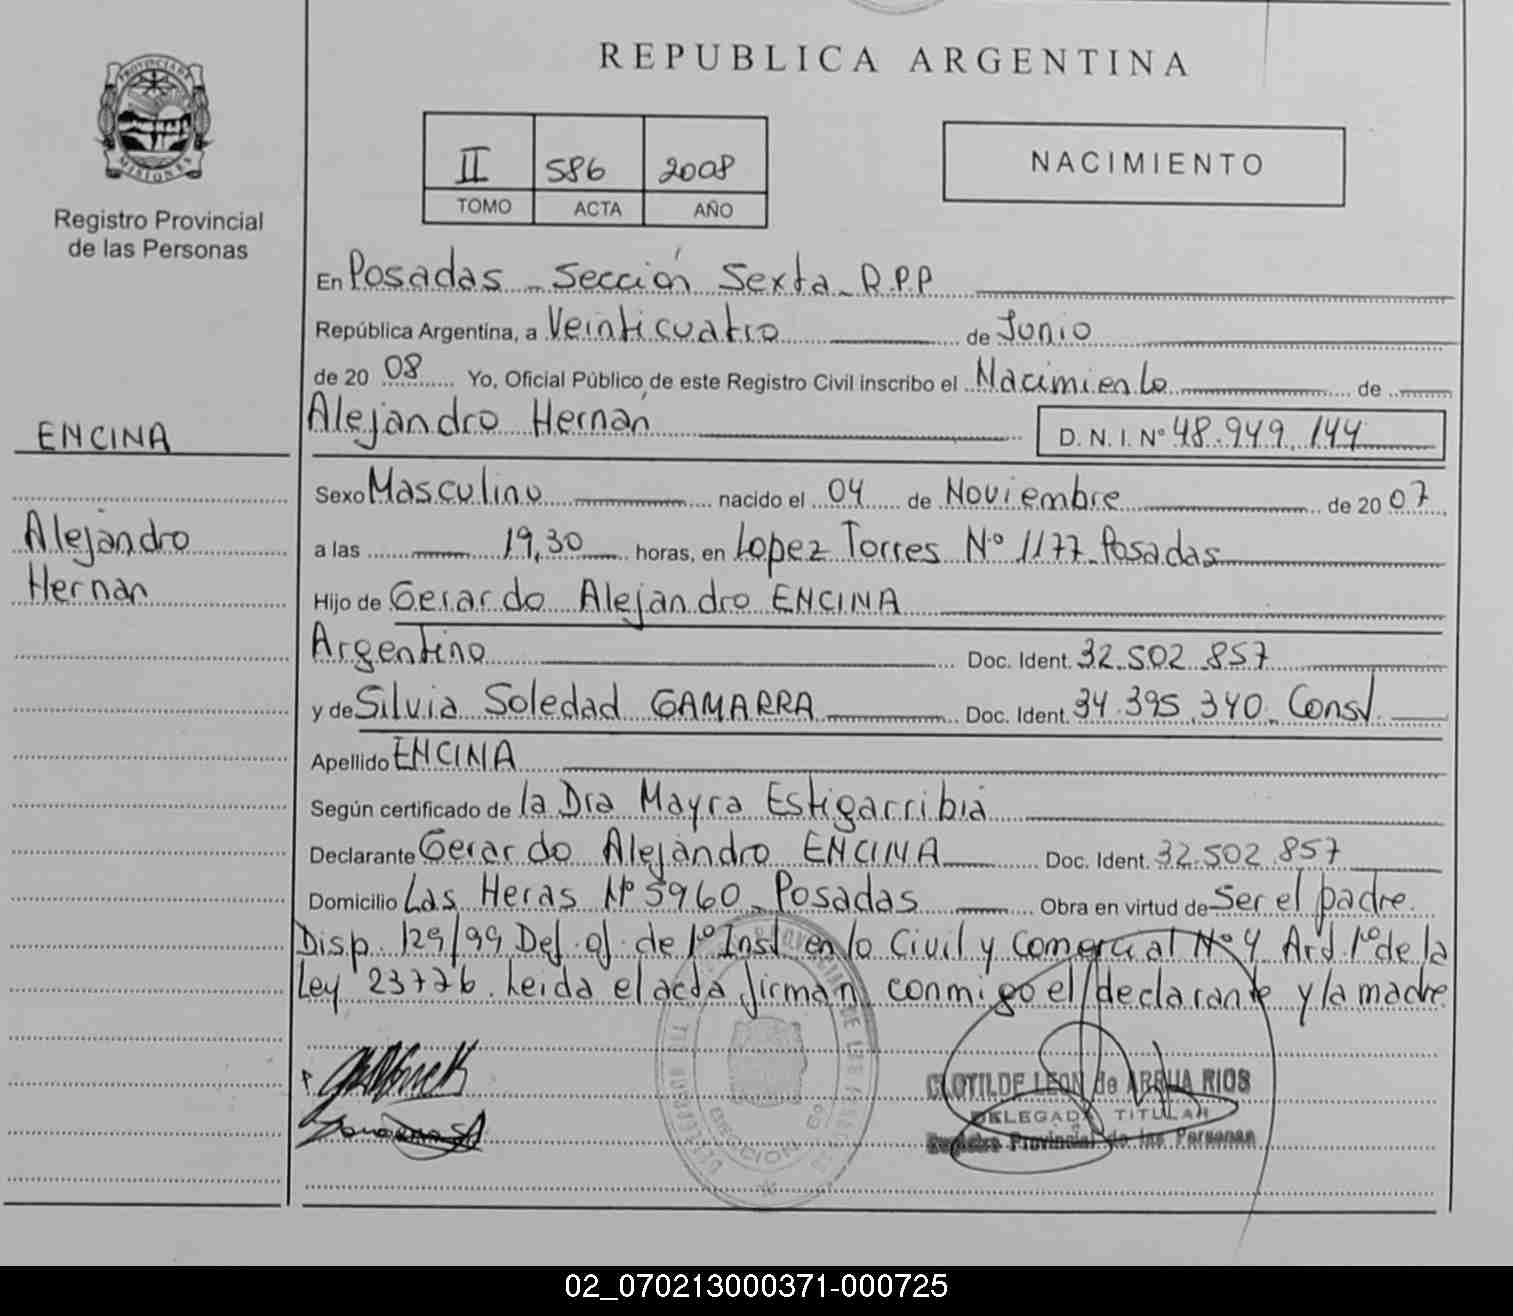 REPUBLICA ARGENTINA
PROVINCIA DE
MISIONES
Registro Provincial
de las Personas
II 586 2008
TOMO ACTA AÑO
NACIMIENTO
En Posadas - Sección Sexta - R.P.P
República Argentina, a Veinticuatro de Junio
de 20 08 Yo, Oficial Público de este Registro Civil inscribo el Nacimiento de
Alejandro Hernán D. N. I. Nº 48.949.144
ENCINA
Sexo Masculino nacido el 04 de Noviembre de 20 07
Alejandro
Hernan
a las 19,30 horas, en Lopez Torres Nº 1177 - Posadas
Hijo de Gerardo Alejandro ENCINA
Argentino Doc. Ident. 32.502.857
y de Silvia Soledad GAMARRA Doc. Ident. 34.395.340 - Const.
Apellido ENCINA
Según certificado de la Dra Mayra Estigarribia
Declarante Gerardo Alejandro ENCINA Doc. Ident. 32.502.857
Domicilio Las Heras Nº 5960 - Posadas Obra en virtud de Ser el padre.
Disp. 129/99 Def. of. de 1º Inst en lo Civil y Comercial Nº 4 Art. 1º de la
Ley 23776. Leida el acta firman conmigo el declarante y la madre
CLOTILDE LEON de ARRUA RIOS
DELEGADA TITULAR
Registro Provincial de las Personas
SECCION 6º
02_070213000371-000725